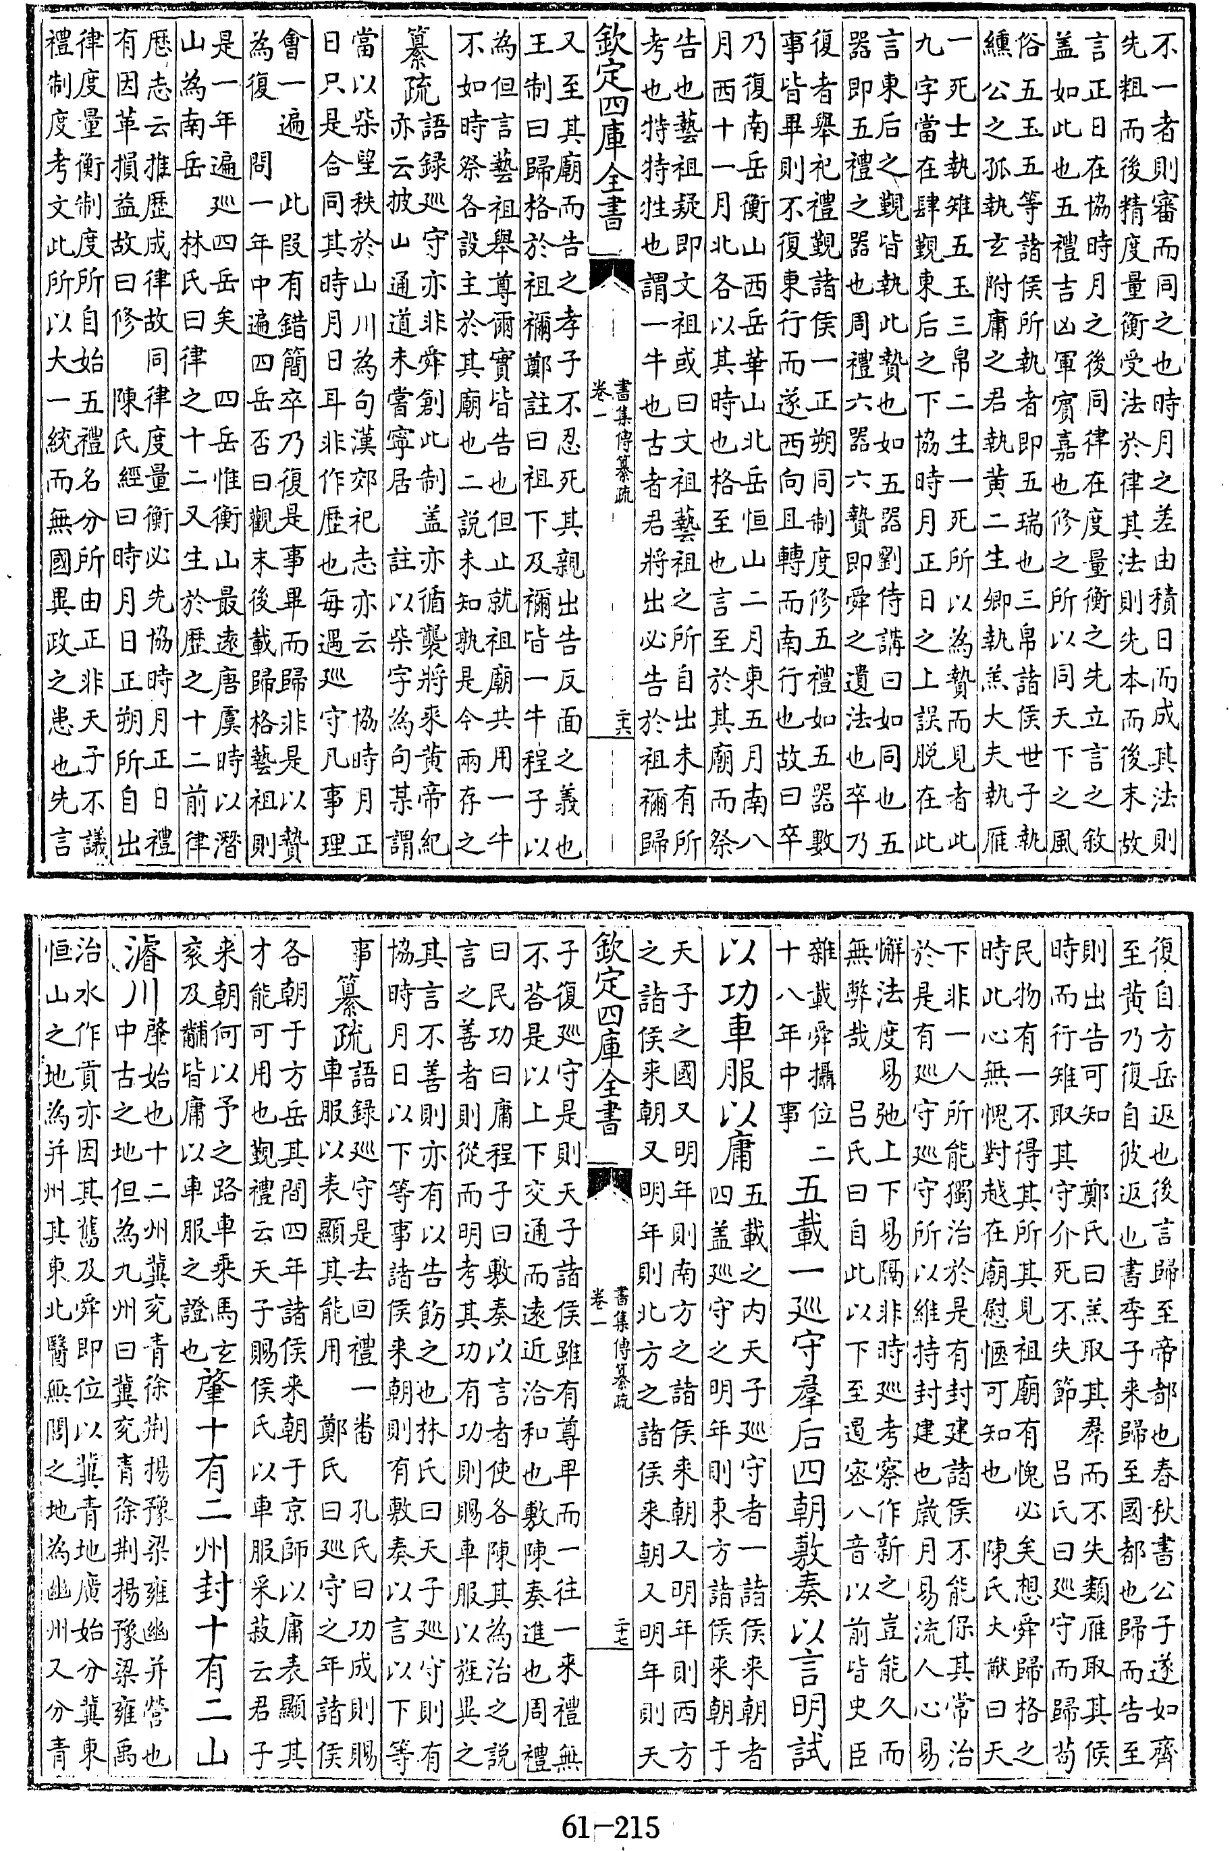 不一者則審而同之也時月之差由積日而成其法則
先粗而後精度量衡受法於律其法則先本而後末故
言正日在協時月之後同律在度量衡之先立言之敘
蓋如此也五禮吉凶軍賓嘉也修之所以同天下之風
俗五玉五等諸侯所執者即五瑞也三帛諸侯世子執
纁公之孤執玄附庸之君執黄二生卿執羔大夫執雁
一死士執雉五玉三帛二生一死所以為贄而見者此
九字當在肆覲東后之下協時月正日之上誤脱在此
言東后之覲皆執此贄也如五器劉侍講曰如同也五
器即五禮之器也周禮六器六贄即舜之遺法也卒乃
復者舉祀禮覲諸侯一正朔同制度修五禮如五器數
事皆畢則不復東行而遂西向且轉而南行也故曰卒
乃復南岳衡山西岳華山北岳恒山二月東五月南八
月西十一月北各以其時也格至也言至於其廟而祭
告也藝祖疑即文祖或曰文祖藝祖之所自出未有所
考也特特牲也謂一牛也古者君將出必告於祖禰歸
欽定四庫全書 卷一 書集傳纂疏 二十六
又至其廟而告之孝子不忍死其親出告反面之義也
王制曰歸格於祖禰鄭註曰祖下及禰皆一牛程子以
為但言藝祖舉尊爾實皆告也但止就祖廟共用一牛
不如時祭各設主於其廟也二說未知孰是今兩存之
纂疏 語録巡守亦非舜創此制蓋亦循襲將來黄帝紀
亦云披山通道未嘗寧居 註以柴字為句某謂
當以柴望秩於山川為句漢郊祀志亦云 協時月正
日只是合同其時月日耳非作歴也每遇巡守凡事理
會一遍 此段有錯簡卒乃復是事畢而歸非是以贄
為復 問一年中遍四岳否曰觀末後載歸格藝祖則
是一年遍巡四岳矣 四岳惟衡山最遠唐虞時以潛
山為南岳 林氏曰律之十二又生於歴之十二前律
歴志云推歴成律故同律度量衡必先協時月正日禮
有因革損益故曰修 陳氏經曰時月日正朔所自出
律度量衡制度所自始五禮名分所由正非天子不議
禮制度考文此所以大一統而無國異政之患也先言
復自方岳返也後言歸至帝都也春秋書公子遂如齊
至黄乃復自彼返也書季子来歸至國都也歸而告至
則出告可知 鄭氏曰羔取其羣而不失類雁取其候
時而行雉取其守介死不失節 吕氏曰巡守而歸茍
民物有一不得其所其見祖廟有愧必矣想舜歸格之
時此心無愧對越在廟慰愜可知也 陳氏大猷曰天
下非一人所能獨治於是有封建諸侯不能保其常治
於是有巡守巡守所以維持封建也歲月易流人心易
懈法度易弛上下易隔非時巡考察作新之豈能久而
無弊哉 吕氏曰自此以下至遏密八音以前皆史臣
雜載舜攝位二
十八年中事
五載一巡守羣后四朝敷奏以言明試
以功車服以庸
五載之内天子巡守者一諸侯来朝者
四蓋巡守之明年則東方諸侯来朝于
天子之國又明年則南方之諸侯来朝又明年則西方
之諸侯来朝又明年則北方之諸侯来朝又明年則天
欽定四庫全書 卷一 書集傳纂疏 二十七
子復巡守是則天子諸侯雖有尊卑而一往一来禮無
不答是以上下交通而遠近洽和也敷陳奏進也周禮
曰民功曰庸程子曰敷奏以言者使各陳其為治之說
言之善者則從而明考其功有功則賜車服以旌異之
其言不善則亦有以告飭之也林氏曰天子巡守則有
協時月日以下等事諸侯来朝則有敷奏以言以下等
事
纂疏 語録巡守是去回禮一畨 孔氏曰功成則賜
車服以表顯其能用 鄭氏曰巡守之年諸侯
各朝于方岳其間四年諸侯来朝于京師以庸表顯其
才能可用也覲禮云天子賜侯氏以車服采菽云君子
来朝何以予之路車乘馬玄
袞及黼皆庸以車服之證也
肇十有二州封十有二山
濬川
肇始也十二州冀兖青徐荆揚豫梁雍幽并營也
中古之地但為九州曰冀兖青徐荆揚豫梁雍禹
治水作貢亦因其舊及舜即位以冀青地廣始分冀東
恒山之地為并州其東北醫無閭之地為幽州又分青
61-215